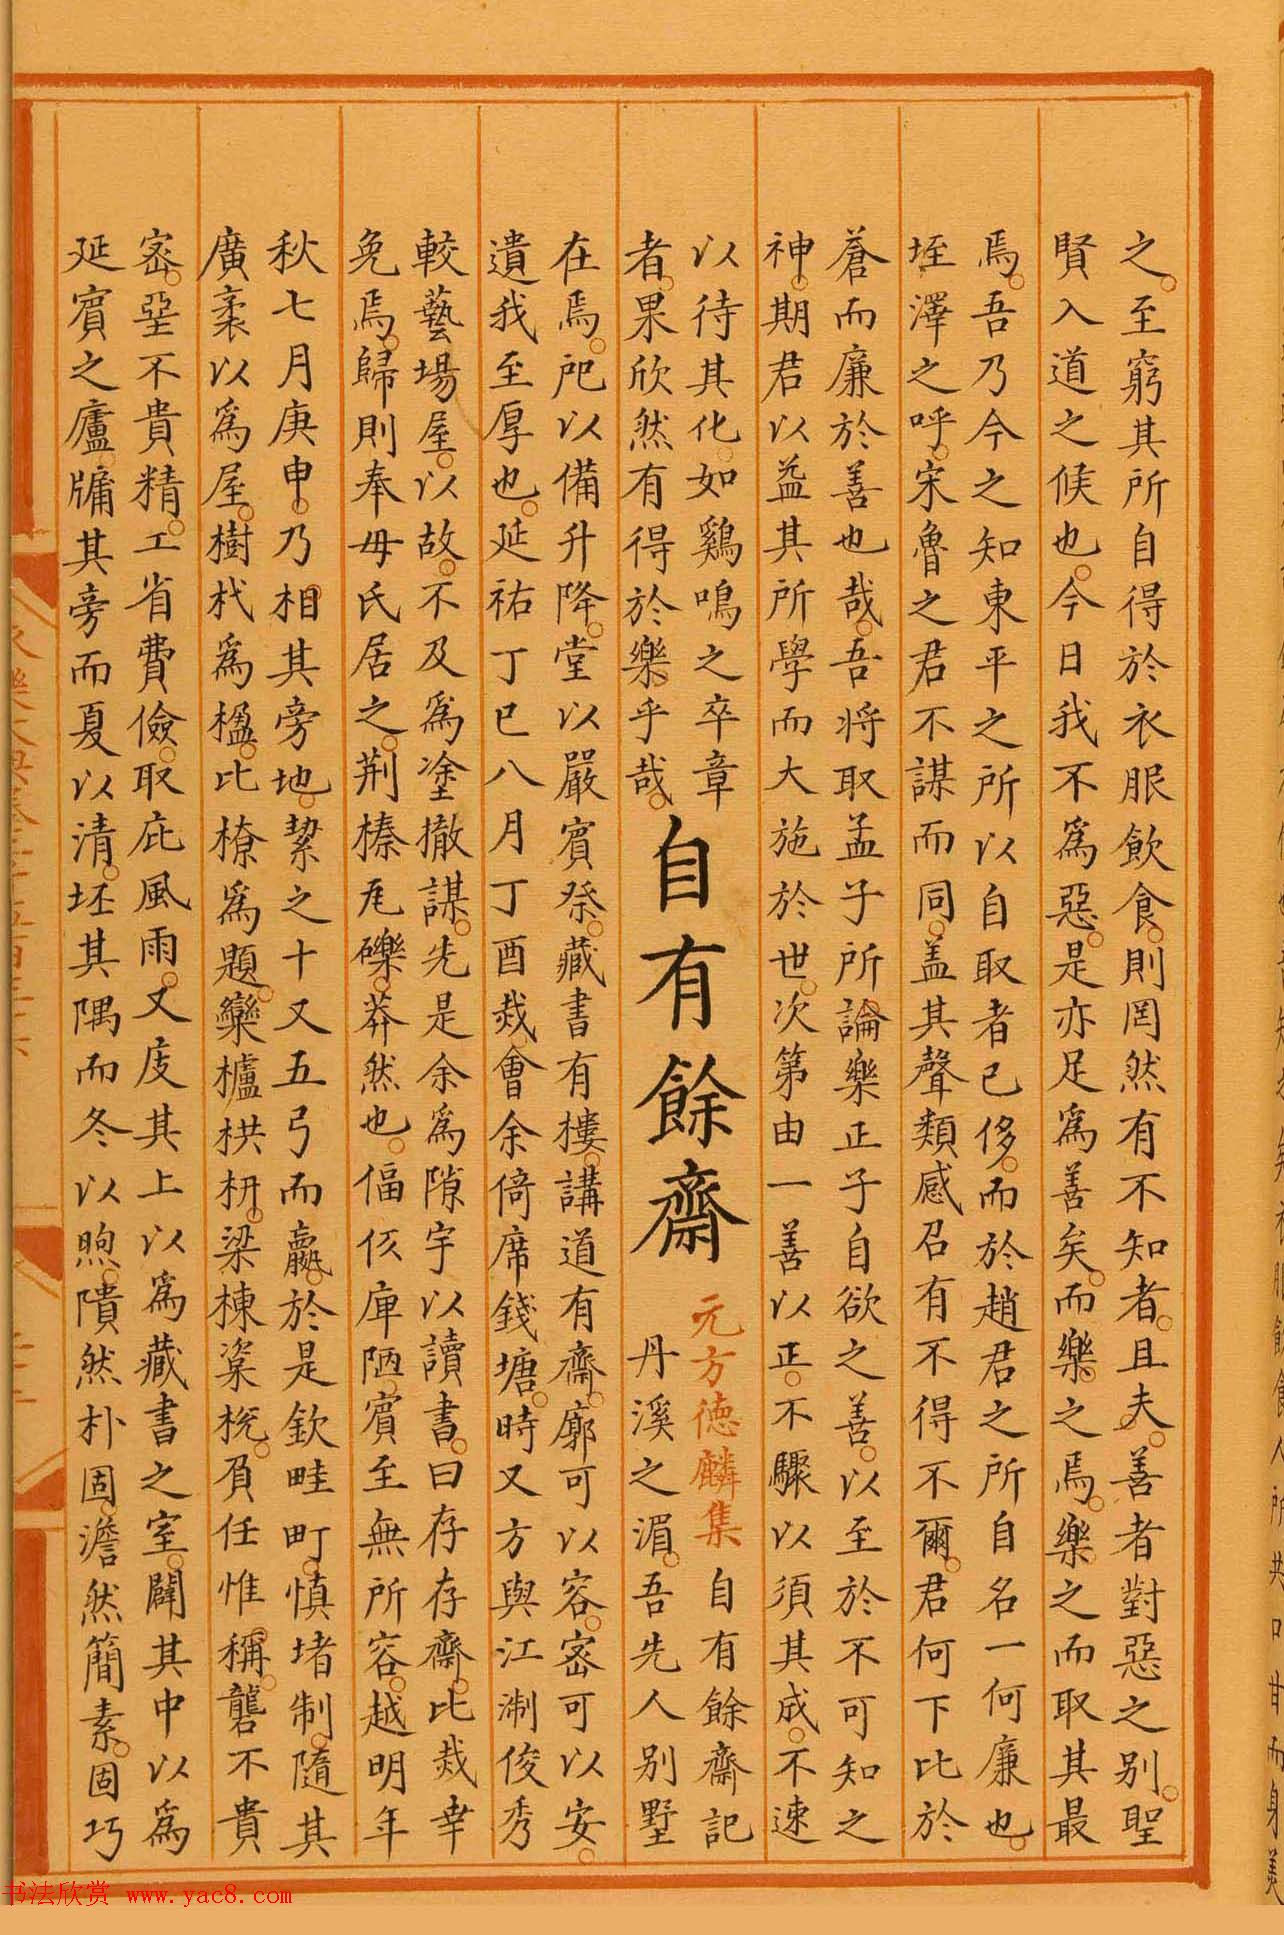 之至窮其所自得於衣服飲食則罔然有不知者且夫善者對惡之別聖
賢入道之候也今日我不爲惡是亦足爲善矣而樂之焉樂之而取其最
焉吾乃今之知東平之所以自取者已侈而於趙君之所自名一何廉也
垤澤之呼宋魯之君不謀而同盖其聲類感召有不得不爾君何下比於
蒼而廉於善也哉吾將取孟子所論樂正子自欲之善以至於不可知之
神期君以益其所學而大施於世次第由一善以正不驟以須其成不速
以待其化如鷄鳴之卒章
者果欣然有得於樂乎哉
自有餘齋
元方德麟集
自有餘齋記
丹溪之湄吾先人別墅
在焉戺以備升降堂以嚴賓祭藏書有樓講道有齋廓可以容宻可以安
遺我至厚也延祐丁巳八月丁酉烖會余倚席錢塘時又方與江淛俊秀
較藝場屋以故不及爲塗撤謀先是余爲隙宇以讀書曰存存齋比烖幸
免焉歸則奉毋氏居之荆榛瓦礫莽然也偪仄庳陋賓至無所容越明年
秋七月庚申乃相其旁地絜之十又五弓而贏於是欽畦町慎堵制隨其
廣袤以爲屋樹杙爲楹比橑爲題欒櫨栱枅梁棟楶梲負任惟稱礱不貴
宻堊不貴精工省費儉取庇風雨又庋其上以爲藏書之室闢其中以爲
延賓之廬牗其旁而夏以清坯其隅而冬以煦隤然朴固澹然簡素固巧
书法欣赏 www.yac8.com